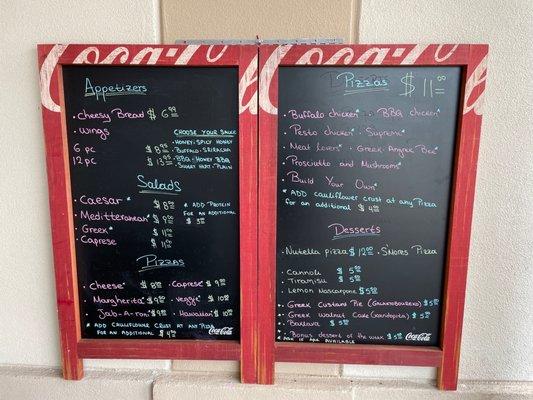 Coca-Cola
Appetizers
Cheesy Bread $6.99
Wings
6 pc $8.99
12 pc $13.99
Choose your sauce
Honey · Spicy Honey
Buffalo · Sriracha
BBQ · Honey BBQ
Sweet Heat · Plain
Salads
Caesar* $8
Meditterranean* $9
Greek* $11
Caprese $11
* Add Protein
for an additional
$3
Pizzas
Cheese* $8
Margherita* $9
Jab-A-Ron* $9
Caprese* $9
Veggie* $10
Hawaiian* $10
* Add Cauliflower Crust at any Pizza
for an additional $4.00
Coca-Cola
Coca-Cola
Pizzas $11.00
Buffalo chicken* · BBQ chicken*
Pesto chicken* · Supreme*
Meat lovers* · Greek · Angree Bee*
Prosciutto and Mushrooms*
Build Your Own*
* Add cauliflower crust at any Pizza
for an additional $4.00
Desserts
Nutella pizza $12.00 · S'Mores Pizza
Cannoli $5
Tiramisu $5
Lemon Mascarpone $5
Greek Custard Pie (Galaktoboureko) $5
Greek Walnut Cake (Karidopita) $5
Baklava $5
Bonus dessert of the week $5
Coca-Cola